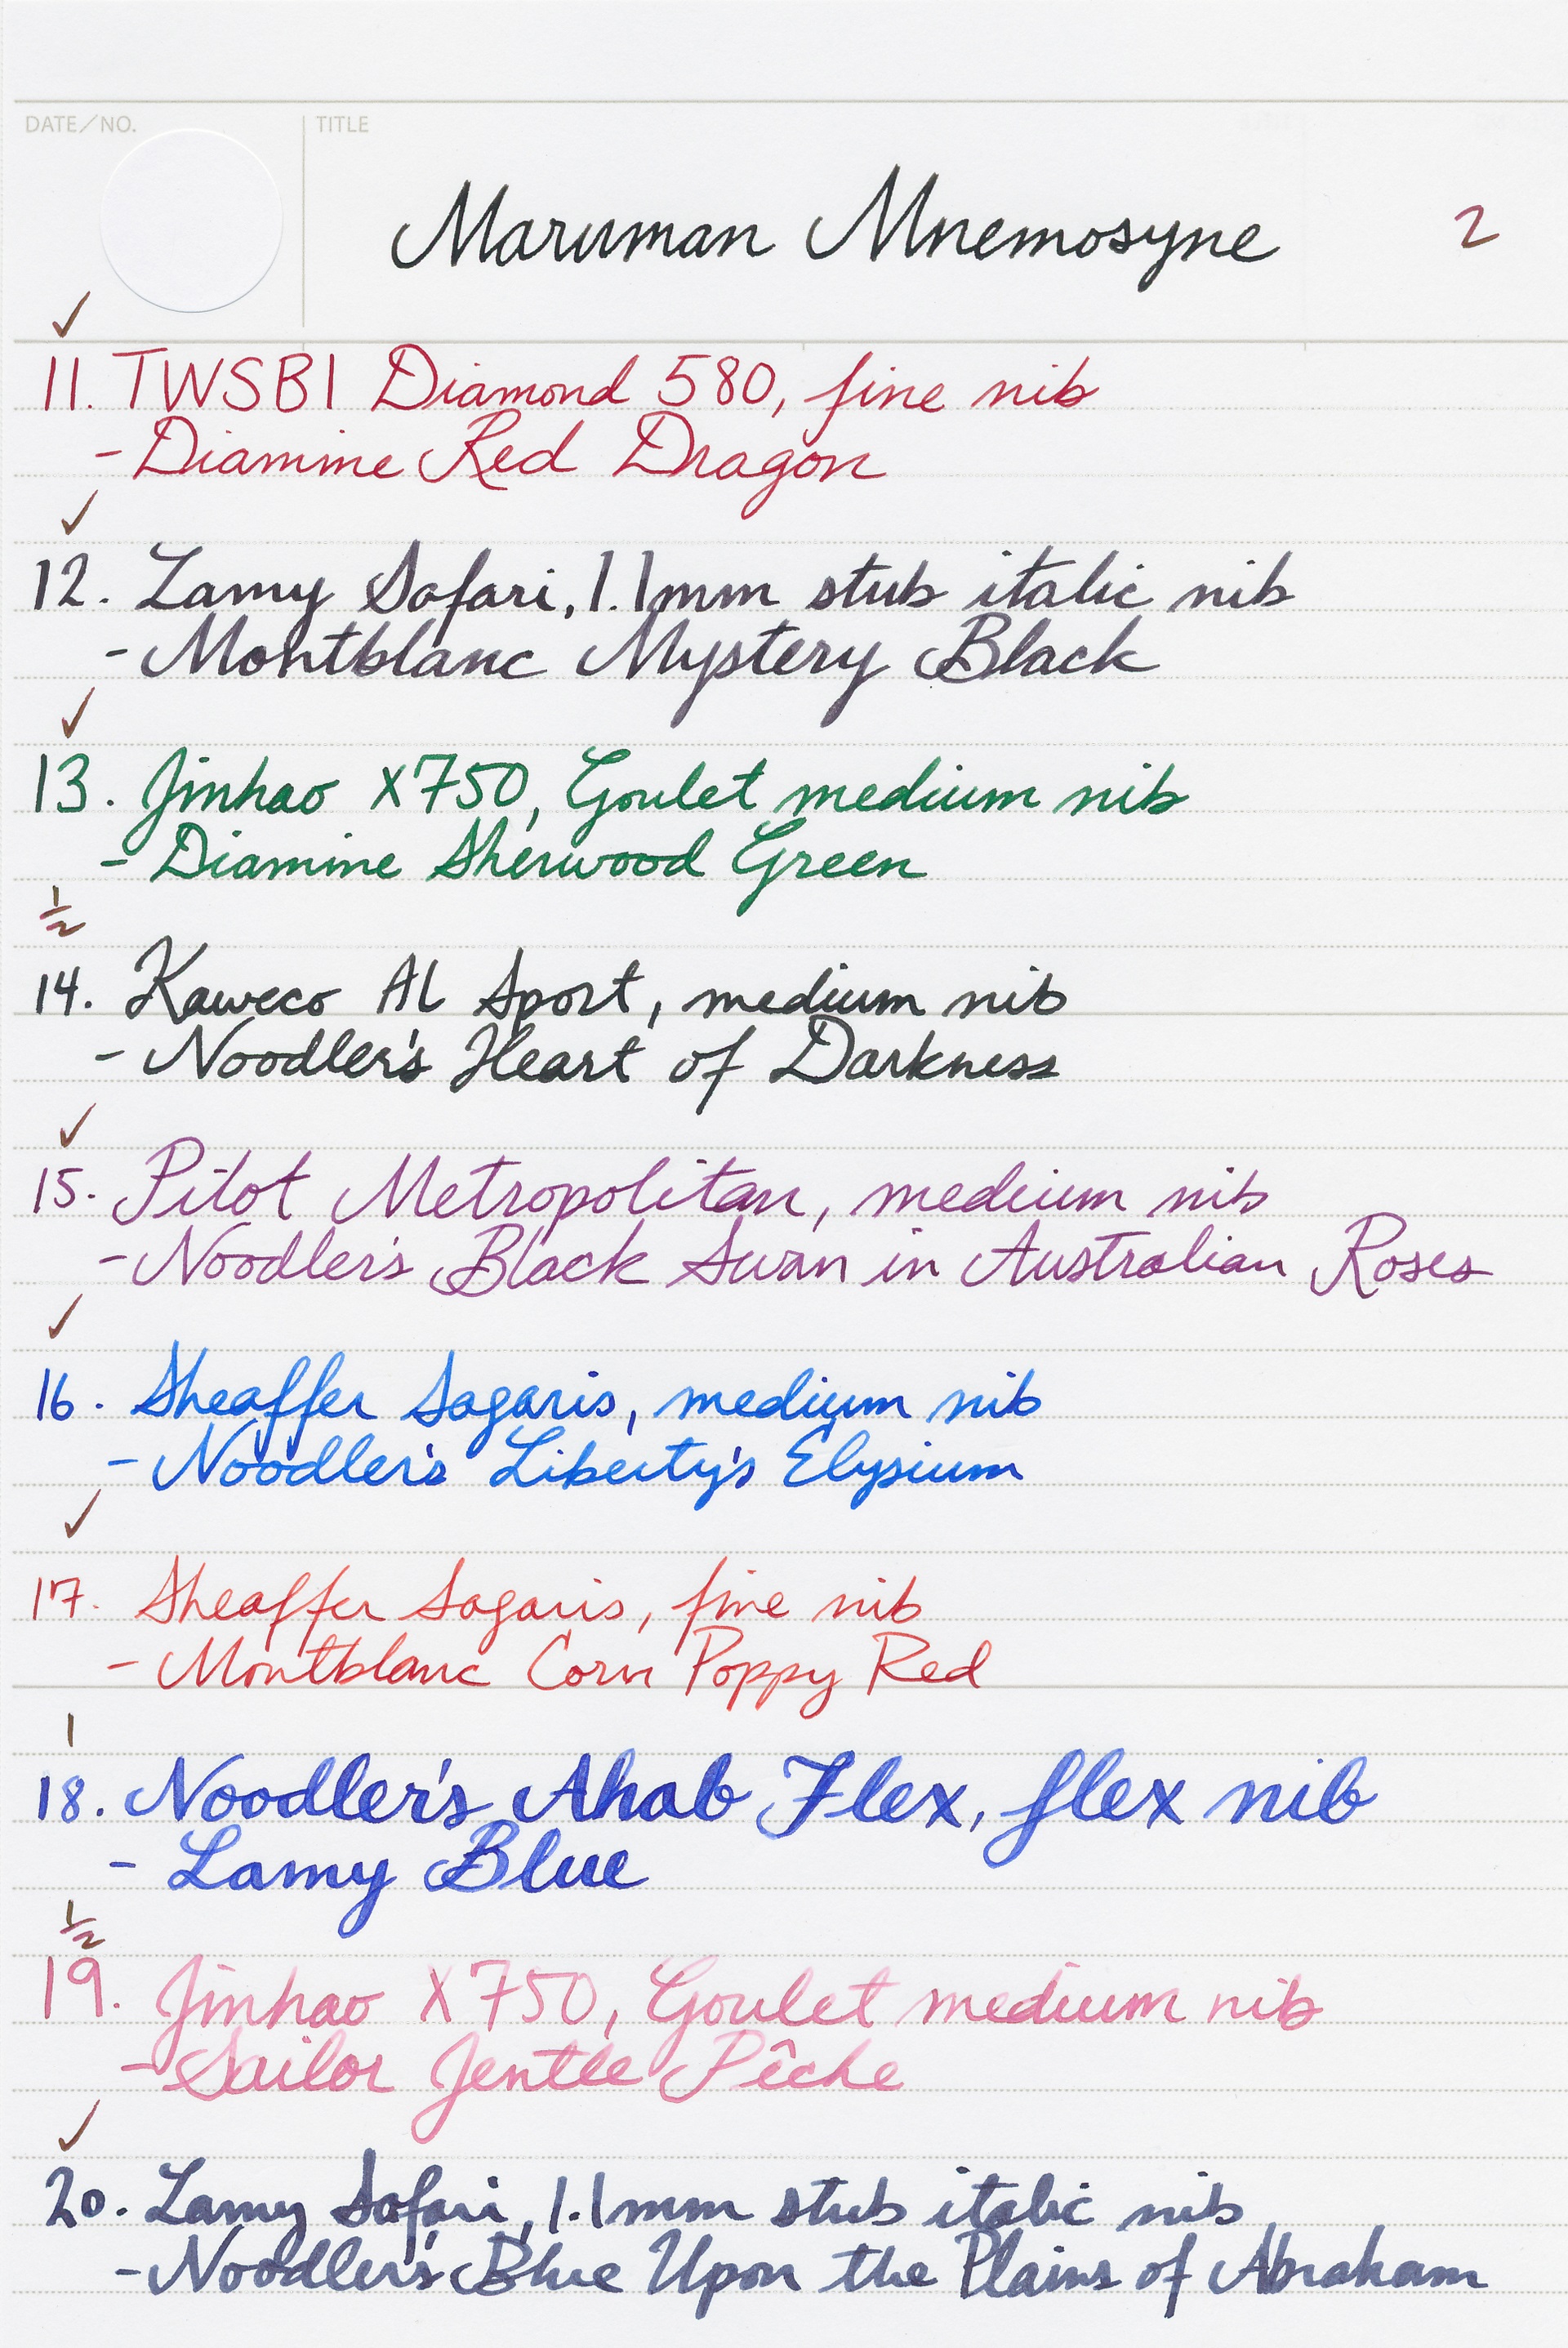 DATE/NO.
TITLE
Maruman Mnemosyne
2
✓
11. TWSBI Diamond 580, fine nib
- Diamine Red Dragon
✓
12. Lamy Safari, 1.1mm stub italic nib
- Montblanc Mystery Black
✓
13. Jinhao X750, Goulet medium nib
- Diamine Sherwood Green
1/2
14. Kaweco Al Sport, medium nib
- Noodler's Heart of Darkness
✓
15. Pilot Metropolitan, medium nib
- Noodler's Black Swan in Australian Roses
✓
16. Sheaffer Sagaris, medium nib
- Noodler's Liberty's Elysium
✓
17. Sheaffer Sagaris, fine nib
- Montblanc Corn Poppy Red
1
18. Noodler's Ahab Flex, flex nib
- Lamy Blue
1/2
19. Jinhao X750, Goulet medium nib
- Sailor Jentle Pêche
✓
20. Lamy Safari, 1.1mm stub italic nib
- Noodler's Blue Upon the Plains of Abraham